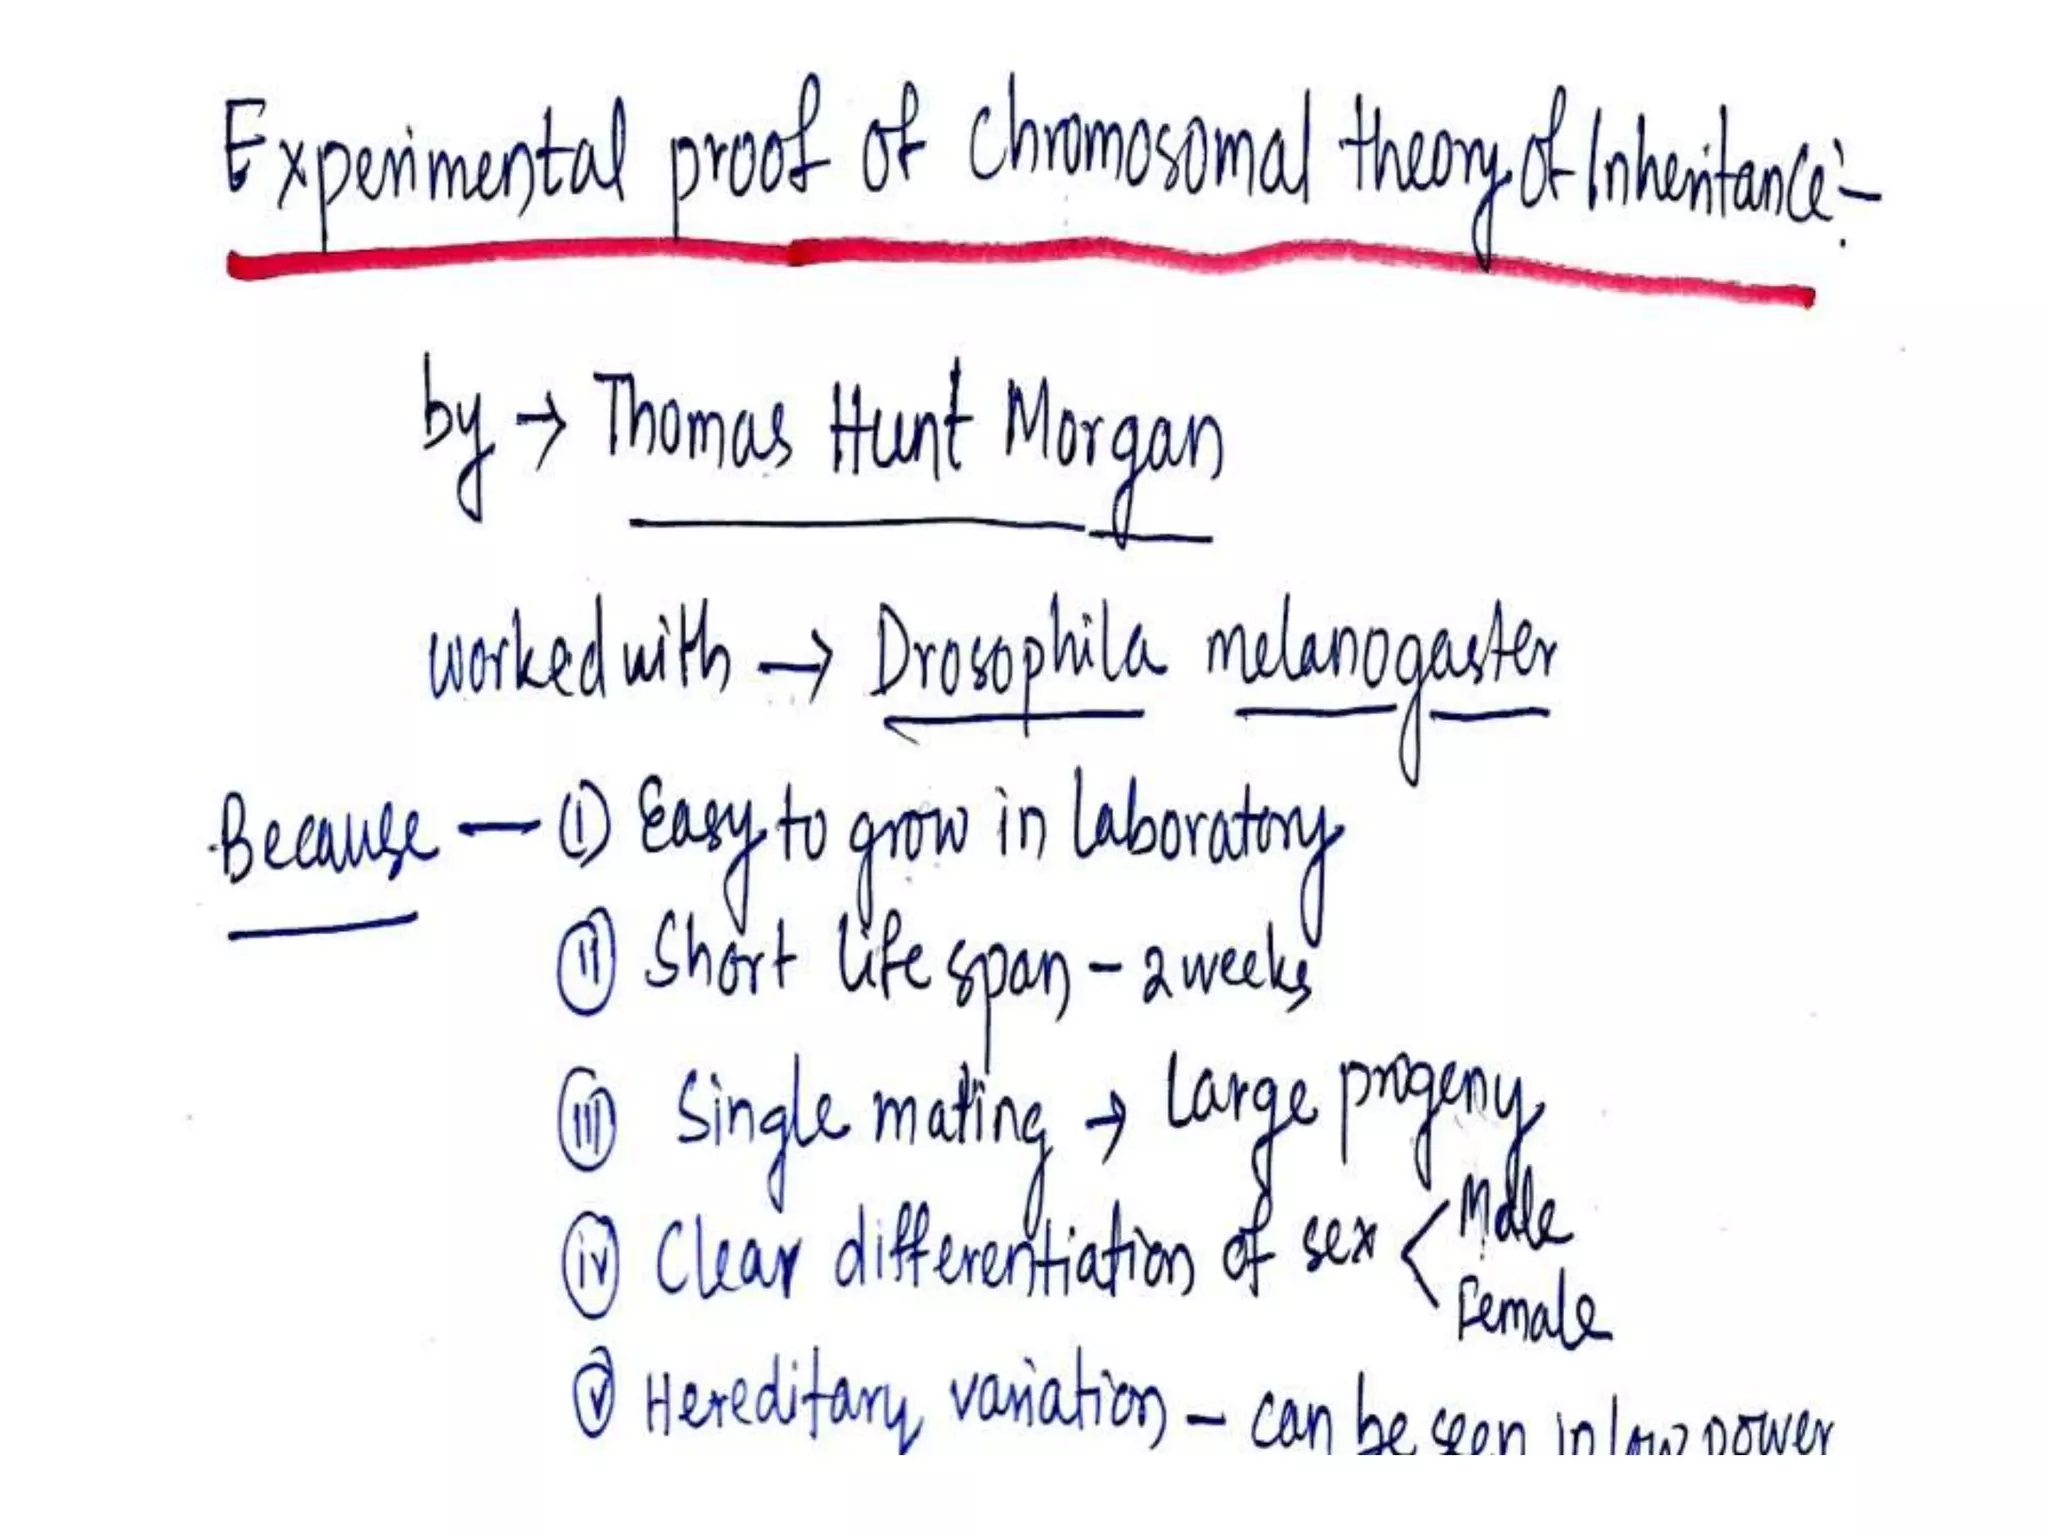 Experimental proof of Chromosomal theory of Inheritance:-
by → Thomas Hunt Morgan
worked with → Drosophila melanogaster
Because — (i) Easy to grow in laboratory
(ii) Short life span - 2 weeks
(iii) Single mating → Large progeny
(iv) Clear differentiation of sex < Male
Female
(v) Hereditary variation - can be seen in low power